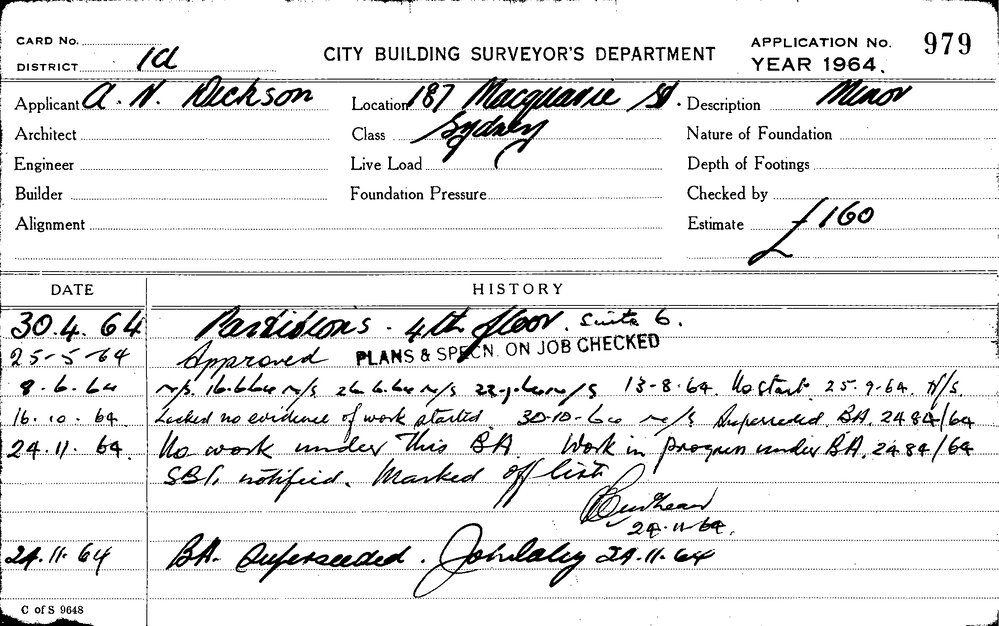 CARD No.
DISTRICT 1a
CITY BUILDING SURVEYOR'S DEPARTMENT
APPLICATION No. 979
YEAR 1964.
Applicant A. N. Dickson Location 187 Macquarie St. Description Minor
Architect Class Sydney Nature of Foundation
Engineer Live Load Depth of Footings
Builder Foundation Pressure Checked by
Alignment Estimate £160
DATE HISTORY
30.4.64 Partitions. 4th floor. Suite 6.
25-5-64 Approved PLANS & SPECN. ON JOB CHECKED
8.6.64 n/s. 16.6.64 n/s 26.6.64 n/s n/s 13-8-64. No start. 25.9.64. N/s
16.10.64 Locked no evidence of work started 30-10-64 n/s Superseded BA. 2484/64
24.11.64. No work under this BA Work in progress under BA. 2484/64
SBI. notified. Marked off list
24.11.64.
24.11.64 BA. Superseeded. John Daley 24.11.64
C of S 9648